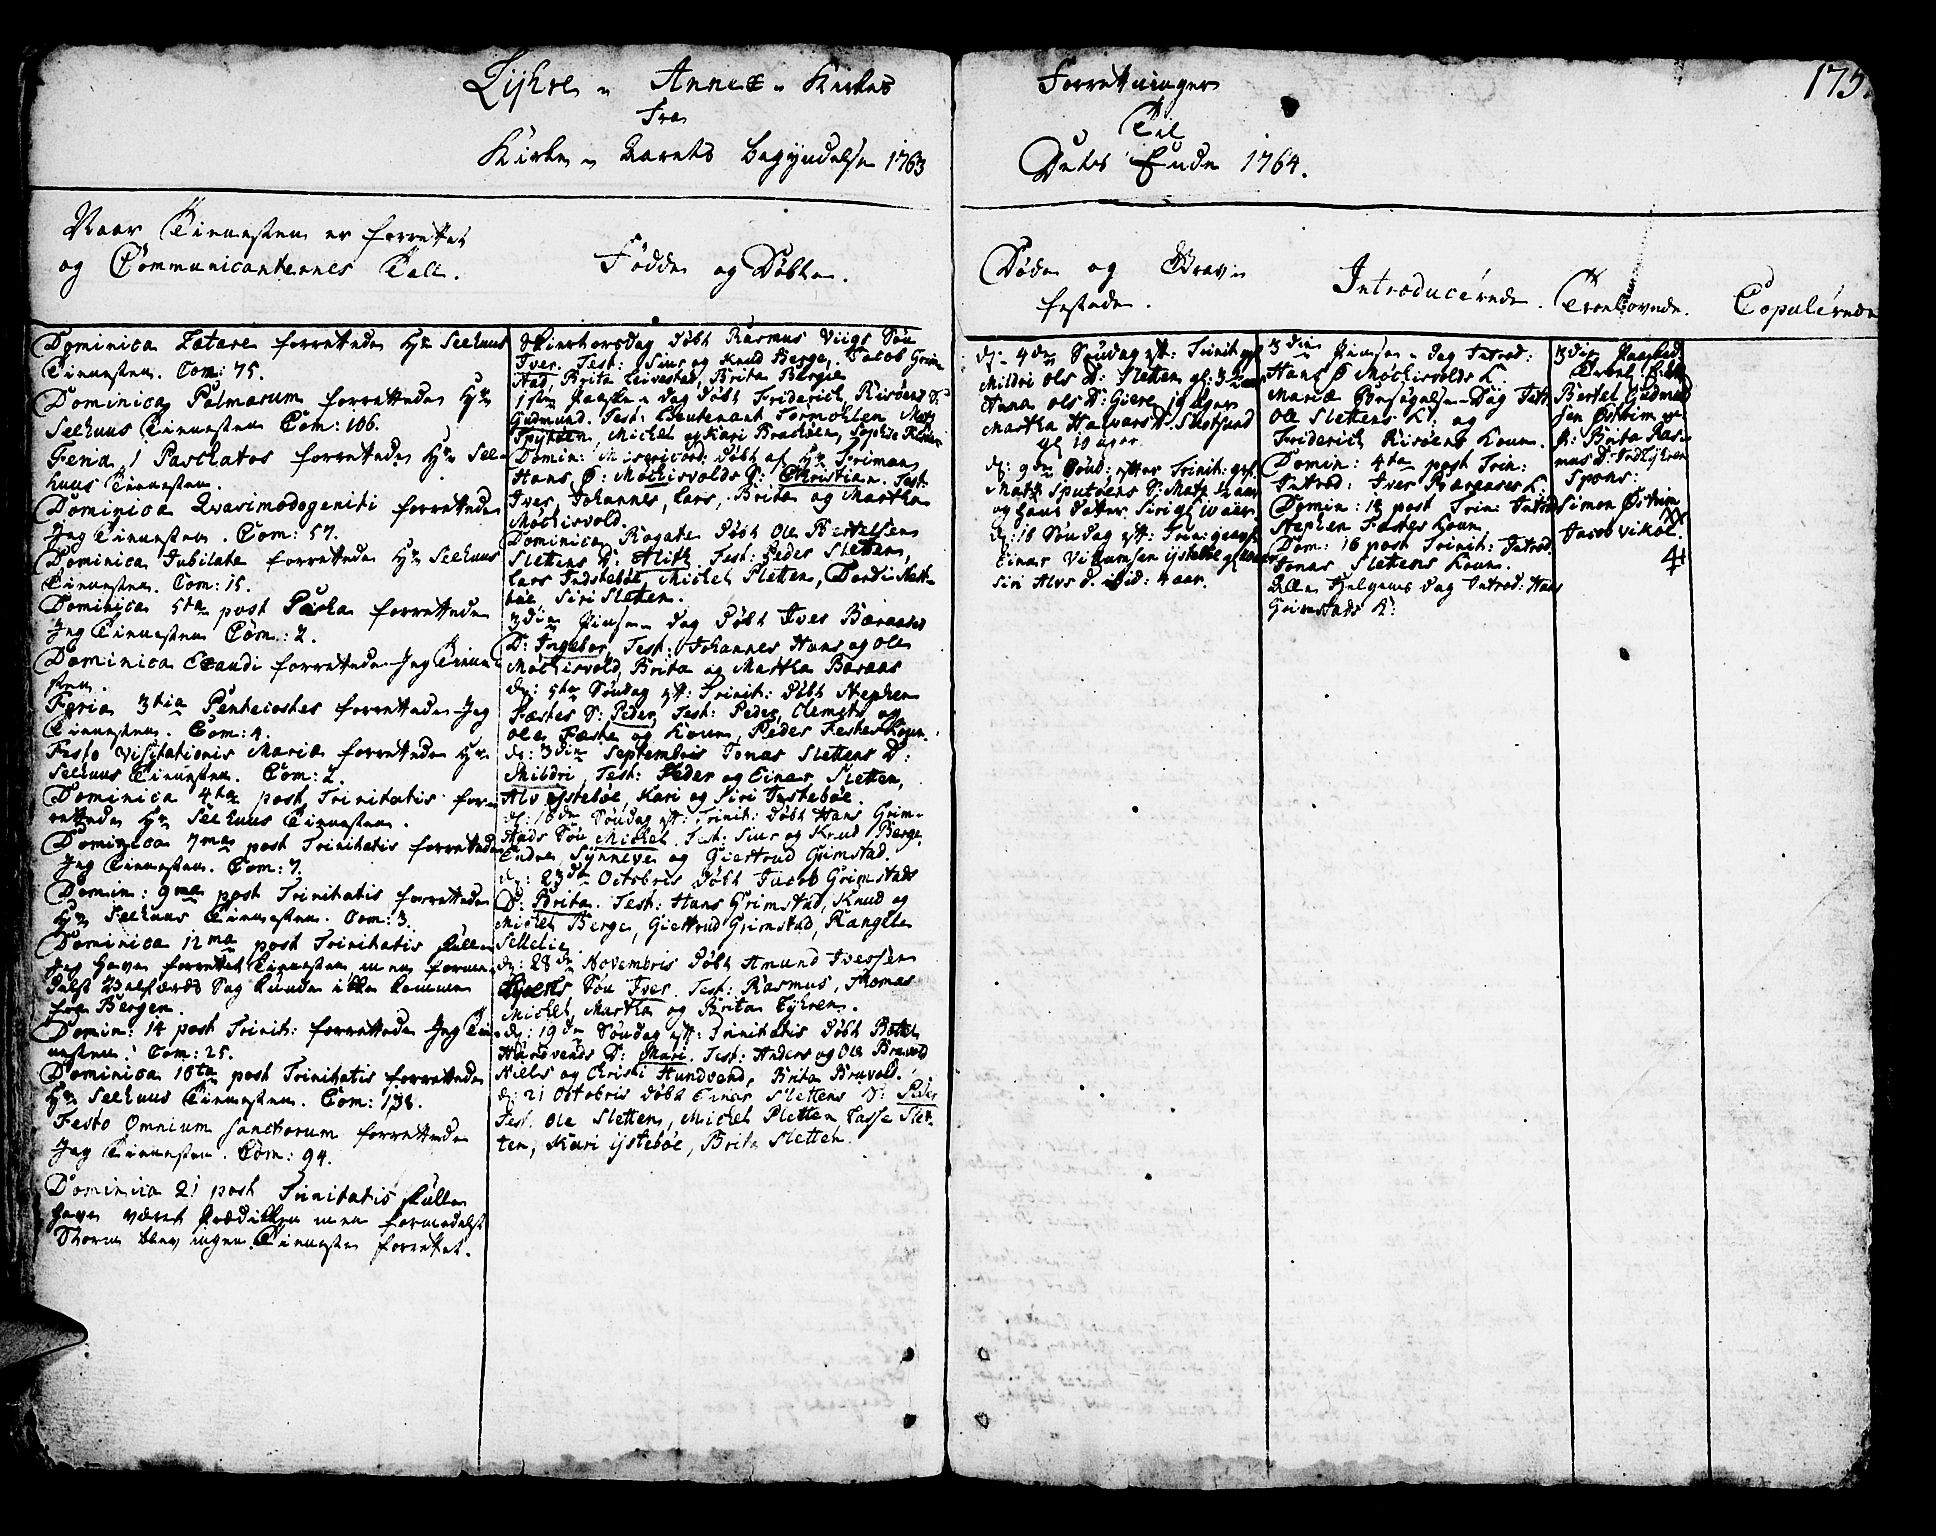 Lijhre - Annex - Kirkes Forrettninger
175.
Fra Til
Kirke - Aarets begyndelse 1763 Dets Ende 1764.
Naar Tienesten er forrettet
og Communicanternes Tall.
Dominica Lætare forrettede Hr Seehuus
Tienesten. Com: 75.
Dominica Palmarum forrettede Hr
Seehuus Tienesten Com: 106.
Feria 1 Paschatos forrettede Hr See-
huus Tienesten.
Dominica Qvasimodogeniti forrettede
Jeg Tienesten. Com: 57.
Dominica Jubilate forrettede Hr Seehuus
Tienesten. Com: 15.
Dominica 5ta post Pascha forrettede
Jeg Tienesten. Com: 2.
Dominica Exaudi forrettede Jeg Tiene-
sten.
Feria 3tia Pentecostes forrettede Jeg
Tienesten. Com: 4.
Festo Visitationis Mariæ forrettede Hr
Seehuus Tienesten. Com: 2.
Dominica 4ta post Trinitatis for-
rettede Hr Seehuus Tienesten.
Dominica 7ma post Trinitatis forrettede
Jeg Tienesten. Com: 7.
Domin: 9ma post Trinitatis forrettede
Hr Seehuus Tienesten. Com: 3.
Dominica 12ma post Trinitatis skulle
Jeg have forrettet Tienesten men forme-
delst Velfærds Sag kunde ikke komme
fra Bergen.
Domin: 14 post Trinit: forrettede Jeg Tie-
nesten. Com: 25.
Dominica 16ta post Trinitatis forrettede
Hr Seehuus Tienesten. Com: 138.
Festo Omnium Sanctorum forrettede
Jeg Tienesten. Com: 94.
Dominica 21 post Trinitatis skulle
have været Prædiken men formedelst
Storm blev ingen Tieneste forrettet.
Fødde og Døbte.
Skiertorsdag døbt Rasmus Viigs Søn
Iver. Test: Siur og Knud Berge, Jacob Grim-
stad, Brita Leivestad, Brita Berge
1ste Paaske-Dag døbt Friderich Risøens S:
Gudmund. Test: Lieutenant Tormohlen, Mats
Spytøen, Michel og Kari Brathøen, Sophie
Domin: Misericord: døbt af Hr Friman
Hans Ø: Mochisvolds S: Christian. Test:
Iver, Johannes, Lars, Brita og Martha
Mochisvold.
Dominica Rogate døbt Ole Bertelsen
Slettens D: Alith. Test: Peder Sletten,
Lars Indstebøe, Michel Sletten, Dordi
bøe Siri Sletten.
3die Pinse-Dag døbt Iver Baraases
D: Ingebor, Test: Johannes Hans og Ole
Mochisvold, Brita og Martha Baraas
d: 5te Søndag eft: Trinit: døbt Stephen
Fæstes S: Peder, Test: Peder, Clemets og
Ole Fæste og Kone, Peder Festes Kone.
d: 3die Septembris Jonas Slettens D:
Shildri, Test: Peder og Einar Sletten,
Alv ystebøe, Kari og Siri Ystebøe.
d: 18de Søndag eft: Trinit: døbt Hans Grim-
stads Søn Michel. Test: Siur og Knud Berge,
Endre, Synneve og Giertrud Grimstad.
d: 23de Octobris døbt Jacob Grimstads
D: Brita. Test: Hans Grimstad, Knud og
Michel Berge, Giertrud Grimstad, Rangele
Sellelie
d: 28de Novembris døbt Amund Iversen
Søn Iver. Test: Rasmus, Thomas
Michel, Martha og Brita Lyhren.
d: 19de Søndag eft: Trinitatis døbt Botel
Hundvends D: Mari. Test: Anders og Ole Bruvold
Niels og Christi Hundvend, Brita Bruvold.
d: 21 Octobris døbt Einar Slettens S: Peder
Test. Ole Sletten, Michel Sletten Lasse Slet-
ten, Kari ystebøe, Brita Sletten.
Døde og Grav-
festede.
d: 4de Søndag eft: Trinit:
Mildri Ols D: Sletten gl: 3½ aar
Anna Ols D: Giere 10 uger
Martha Halvars D:
gl 10 uger.
d: 9de Sønd: efter Trinit:
Mats Sputøens S: Mats ½ aar
og hans Datter Siri gl 10 aar.
d: 18 Søndag eft: Trin:
Einar Villumsen ystebøe
Siri Alvs D. ibid: 4 aar.
Introducerede.
3die Pinse-Dag Introd:
Hans Ø Mochisvolds K:
Mariæ Besøgelse-Dag Intr:
Ole Slettens K: og
Friderich Risøens Kone.
Domin: 4ta post Trin:
Introd: Iver Baraases K:
Domin: 12 post Trin: Introd
Stephen Fæstes Kone
Dom: 16 post Trinit: Introd.
Jonas Slettens Kone.
Alle Helgens dag Introd: Hans
Grimstads K:
Troelovede.
3die Paasked:
Bertel Gudmund
sen Østrim og
P: Brita Ras-
mus D: Indlyhren
Spons:
Simon Østrim
Jacob Vikøe.
4
Copulerede